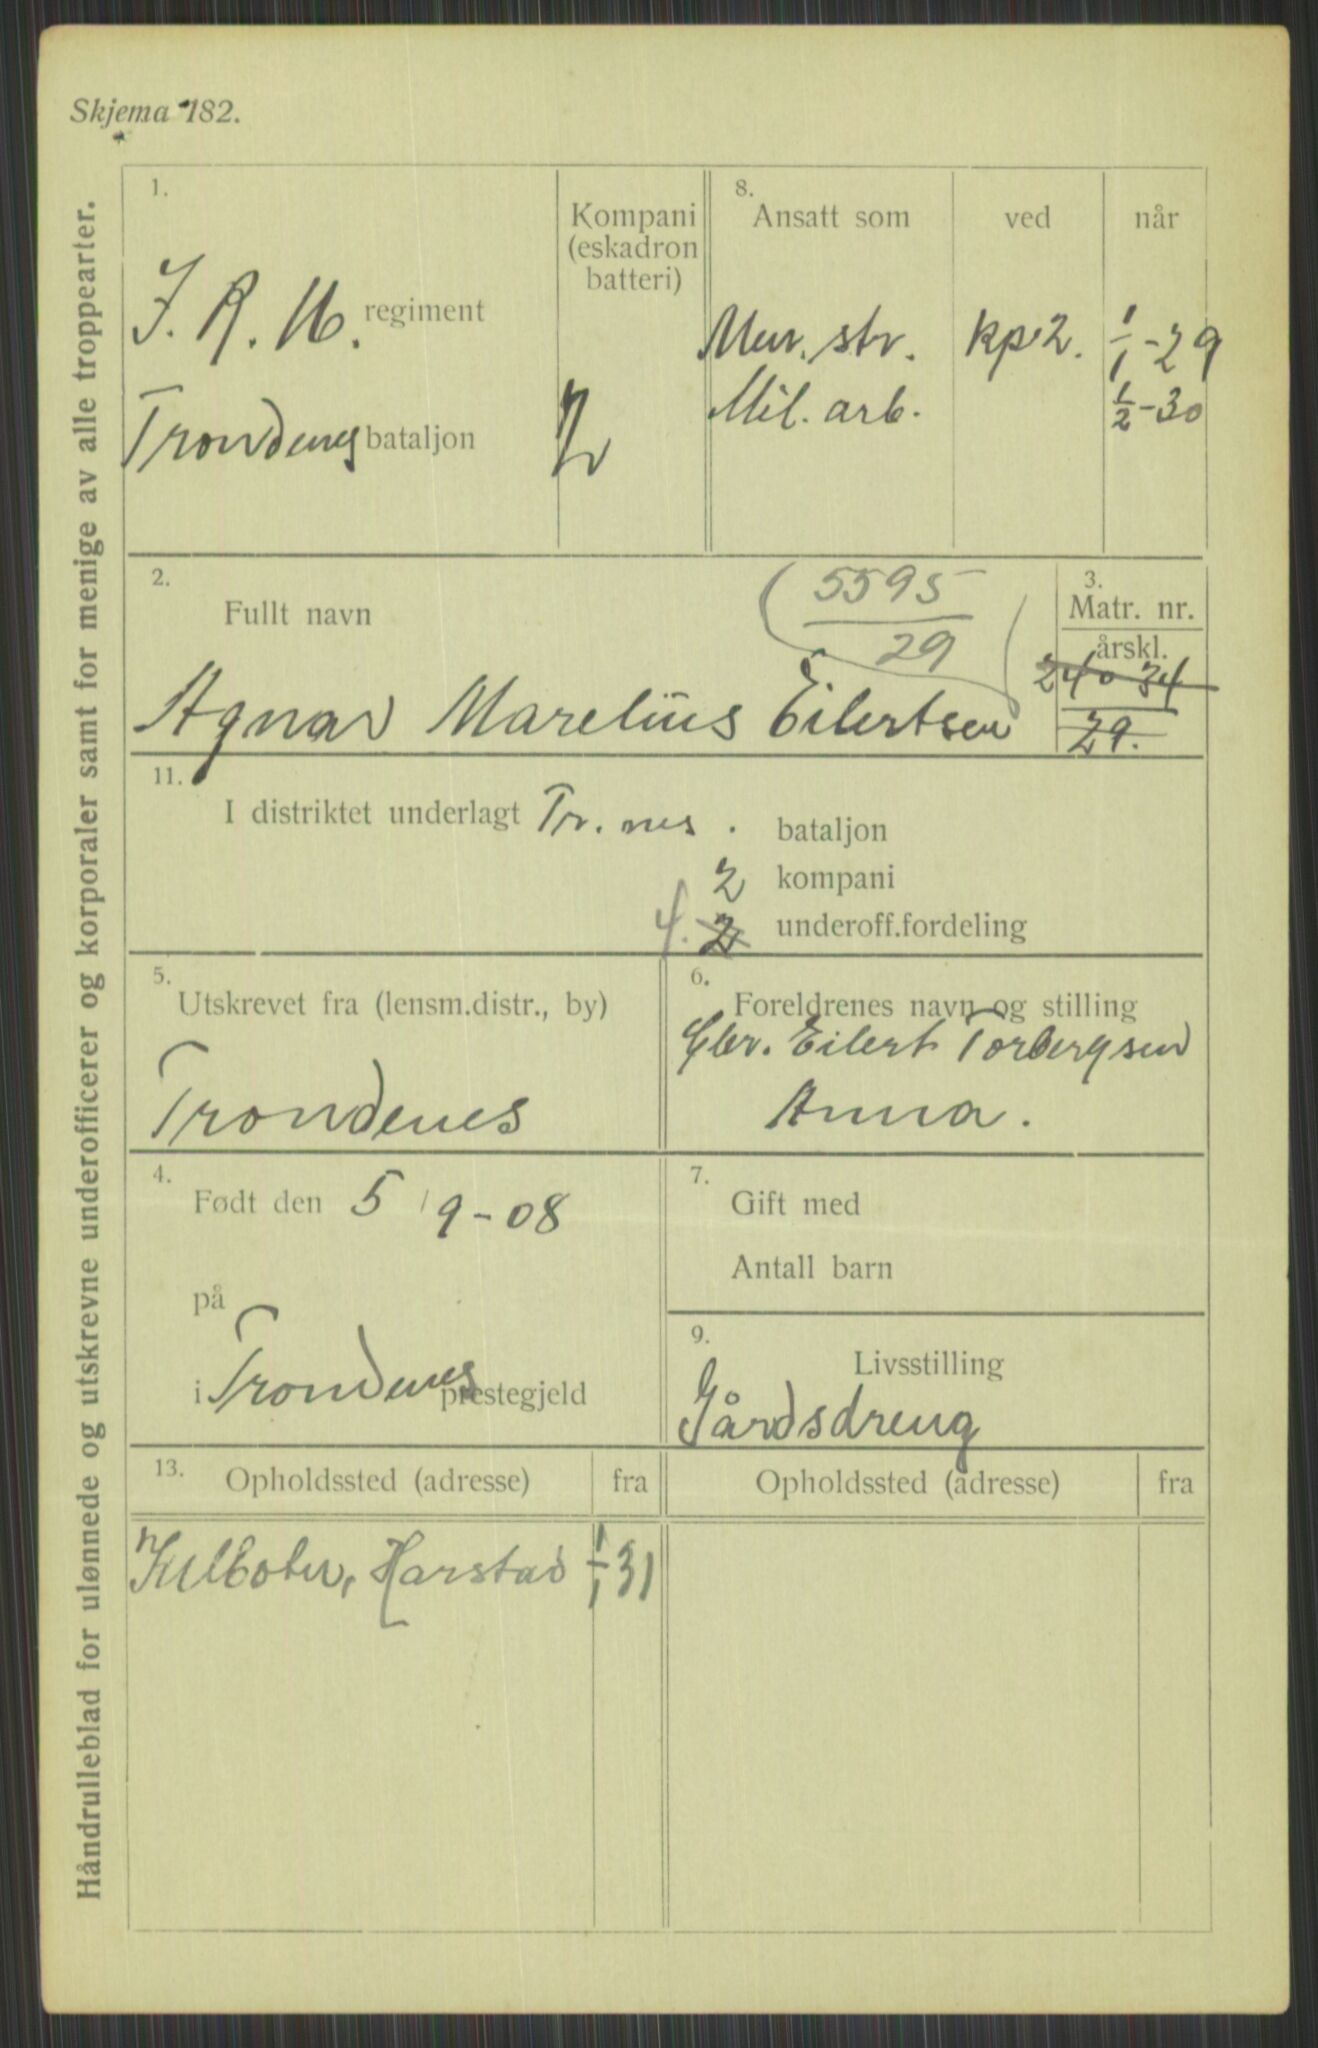 Skjema 182.
Håndrulleblad for ulønnede og utskrevne underofficerer og korporaler samt for menige av alle troppearter.
1.
I. R. 16. regiment
Trondenes bataljon
Kompani
(eskadron
batteri)
2
8.
Ansatt som ved når
str. kp 2. 1/1-29
Mil. arb. 1/2-30
2.
Fullt navn
5595
29
Agnar Marelius Eilertsen
3.
Matr. nr.
årskl.
34
29.
11.
I distriktet underlagt Tr. nes. bataljon
2 kompani
4. 2 underoff.fordeling
5.
Utskrevet fra (lensm.distr., by)
Trondenes
6.
Foreldrenes navn og stilling
Eilert Torbergsen
Anna.
4.
Født den 5/9-08
på
i Trondenes prestegjeld
7.
Gift med
Antall barn
9.
Livsstilling
Gårdsdreng
13.
Opholdssted (adresse) fra
Opholdssted (adresse) fra
Kilboten, Harstad 1/1 31